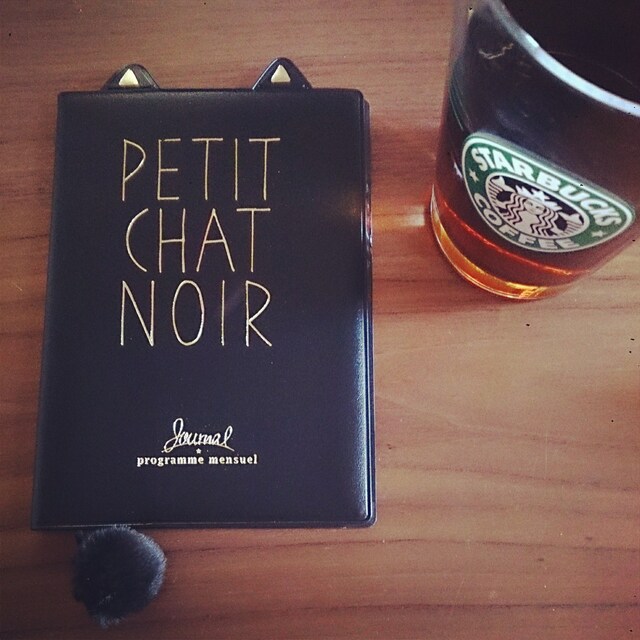 PETIT
CHAT
NOIR
Journal
programme mensuel
STARBUCKS
COFFEE